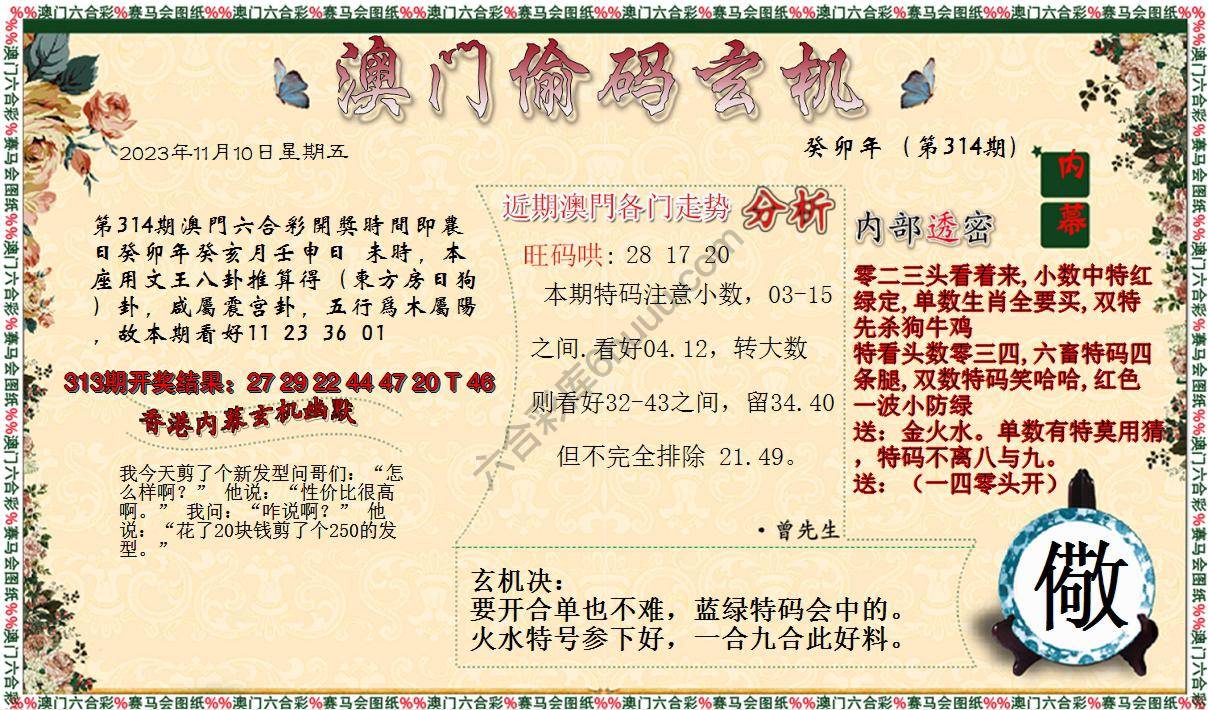 %%澳门六合彩%赛马会图纸%%澳门六合彩%赛马会图纸%%澳门六合彩%赛马会图纸%%澳门六合彩%赛马会图纸%%澳门六合彩%赛马会图纸%%澳门六合彩%赛马会图纸
澳门偷码玄机
2023年11月10日星期五
癸卯年（第314期）
内
幕
第314期澳門六合彩開獎時間即農
日癸卯年癸亥月壬申日 未時，本
座用文王八卦推算得（東方房日狗
）卦，咸屬震宫卦，五行爲木屬陽
，故本期看好11 23 36 01
313期开奖结果：27 29 22 44 47 20 T 46
香港内幕玄机幽默
我今天剪了个新发型问哥们：“怎
么样啊？” 他说：“性价比很高
啊。” 我问：“咋说啊？” 他
说：“花了20块钱剪了个250的发
型。”
近期澳門各门走势 分析
旺码哄: 28 17 20
本期特码注意小数，03-15
之间.看好04.12，转大数
则看好32-43之间，留34.40
但不完全排除 21.49。
·曾先生
内部透密
零二三头看着来,小数中特红
绿定,单数生肖全要买,双特
先杀狗牛鸡
特看头数零三四,六畜特码四
条腿,双数特码笑哈哈,红色
一波小防绿
送：金火水。单数有特莫用猜
，特码不离八与九。
送：（一四零头开）
玄机决：
要开合单也不难，蓝绿特码会中的。
火水特号参下好，一合九合此好料。
儆